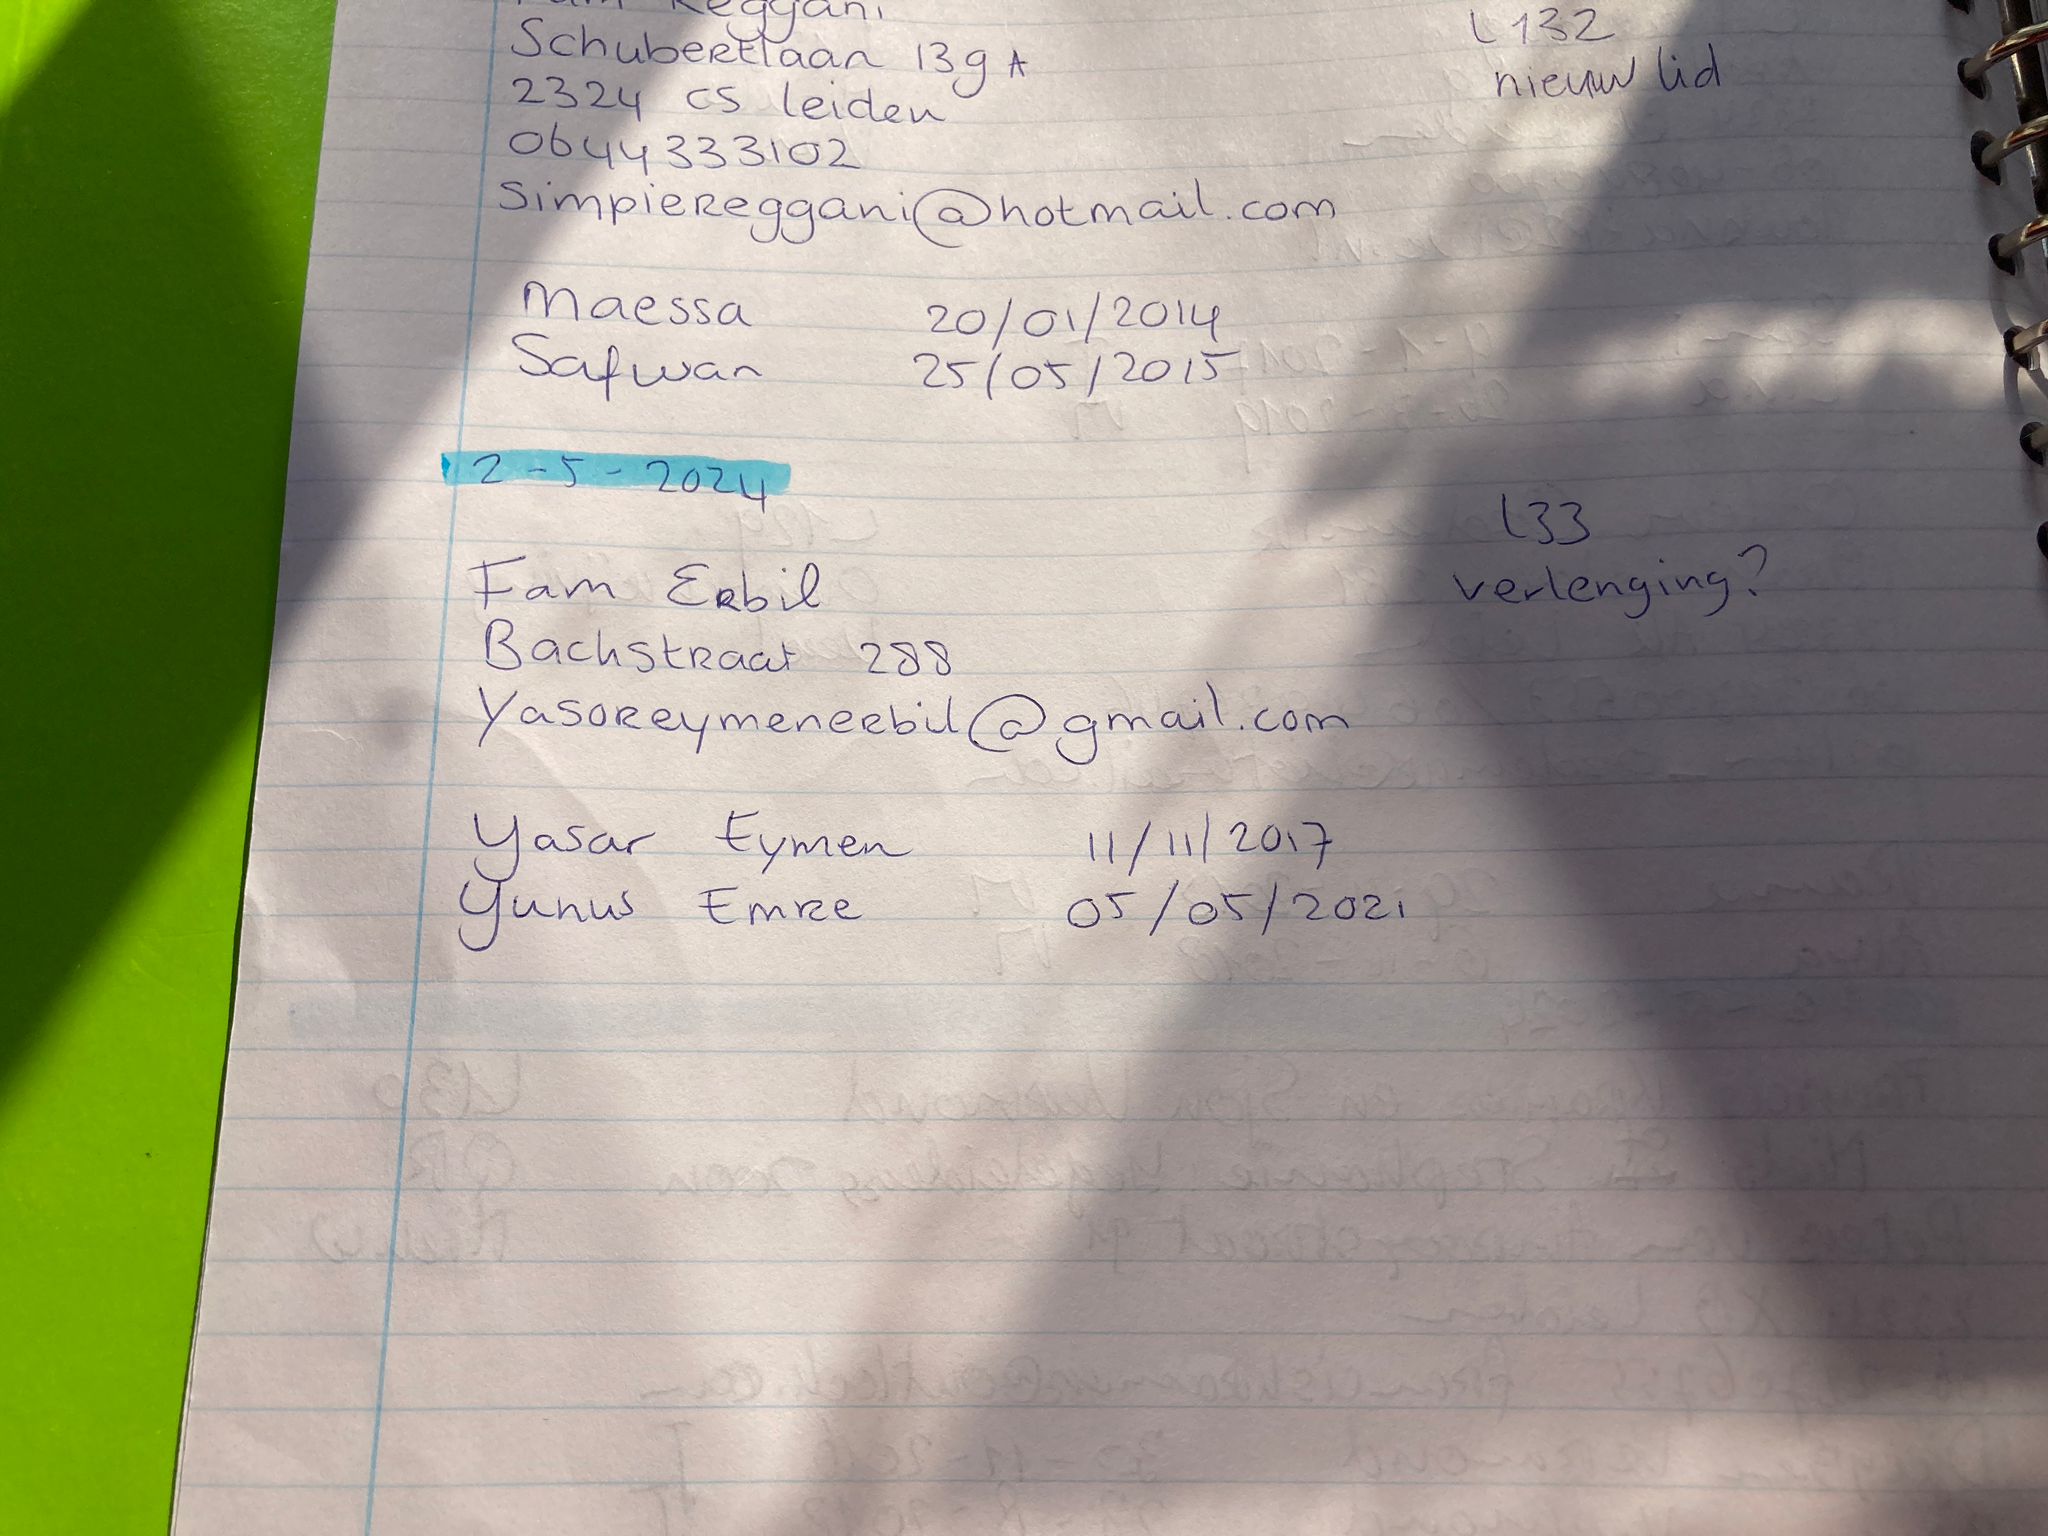 Fam Reggani
L132
Schubertlaan 139 A
nieuw lid
2324 CS Leiden
0644333102
simpiereggani@hotmail.com
Maessa 20/01/2014
Safwan 25/05/2015
2-5-2024
L33
Fam Erbil
verlenging?
Bachstraat 288
Yasoreymenerbil@gmail.com
Yasar Eymen 11/11/2017
Yunus Emre 05/05/2021